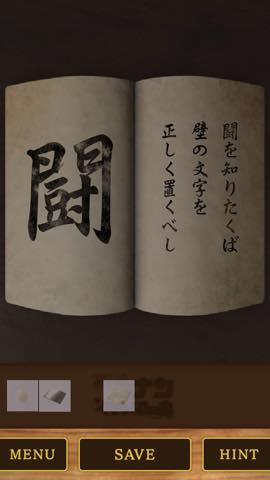 闘
闘を知りたくば
壁の文字を
正しく置くべし
MENU
SAVE
HINT